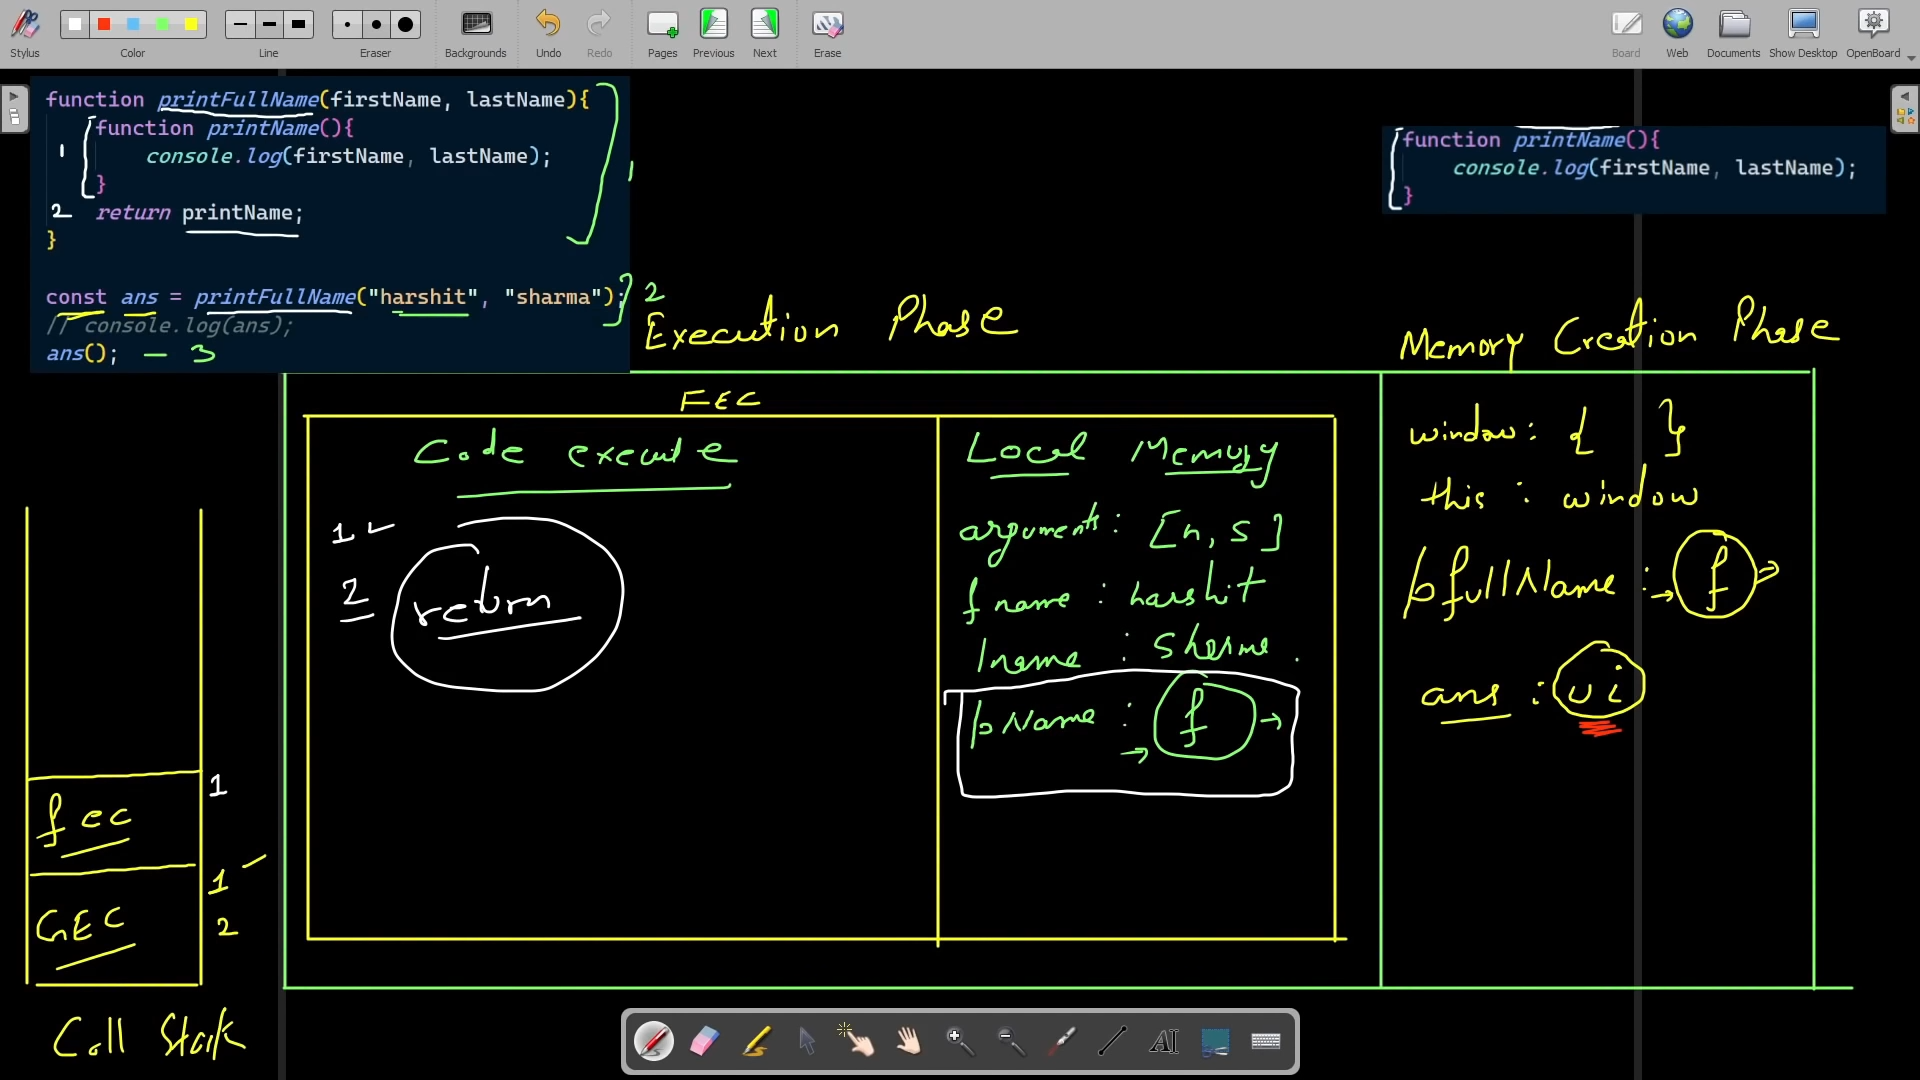 Stylus Color Line Eraser Backgrounds Undo Redo Pages Previous Next Erase Board Web Documents Show Desktop OpenBoard
function printFullName(firstName, lastName){
1 function printName(){
console.log(firstName, lastName);
}
2 return printName;
}
1
const ans = printFullName("harshit", "sharma");
2
// console.log(ans);
ans(); - 3
function printName(){
console.log(firstName, lastName);
}
Execution Phase
Memory Creation Phase
FEC
Code execute
1
2 return
Local Memory
arguments: [h, s]
fname : harshit
lname : Sharma.
pName : f
window: { }
this : window
pfullName : f
ans : ui
fec 1
1
GEC 2
Call Stack
AI